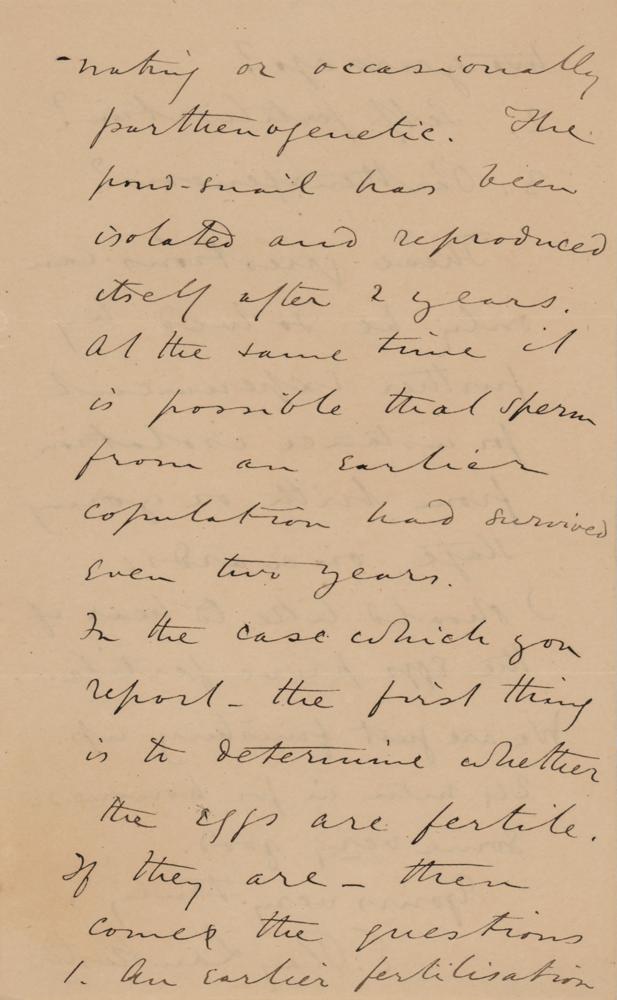 -nating or occasionally
parthenogenetic. The
pond-snail has been
isolated and reproduced
itself after 2 years.
At the same time it
is possible that sperm
from an earlier
copulation had survived
even two years.
In the case which you
report - the first thing
is to determine whether
the eggs are fertile.
If they are - then
comes the questions
1. An earlier fertilisation